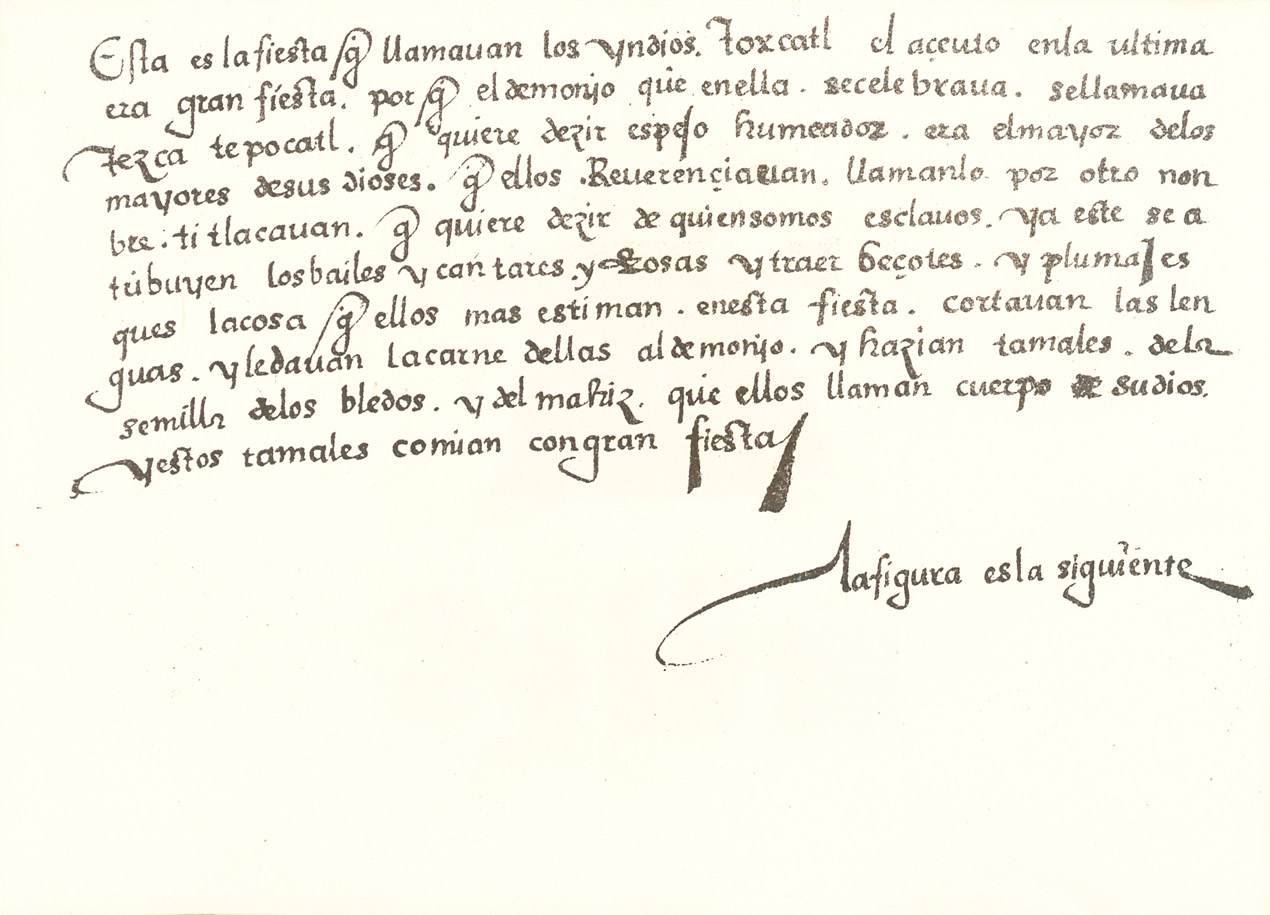 Esta es la fiesta q̃ llamavan los yndios. Toxcatl el açeuto enla ultima
era gran fiesta. por q̃ el demonjo que enella. secelebraua. sellamaua
Tezca tepocatl. q̃ quiere dezir espejo humeador. era elmayor delos
mayores desus dioses. q̃ ellos .Reuerençiauan. llamanlo por otro non
bre. titlacauan. q̃ quiere dezir de quiensomos esclauos. ya este se a
tribuyen losbailes y cantares y Rosas y traer beçotes. y plumajes
ques lacosa q̃ ellos mas estiman. enesta fiesta. cortauan las len
guas. yledauan lacarne dellas aldemonjo. y hazian tamales. dela
semilla delos bledos. y del mahiz. que ellos llaman cuerpo de sudios.
yestos tamales comian congran fiesta
lafigura esla siguiente